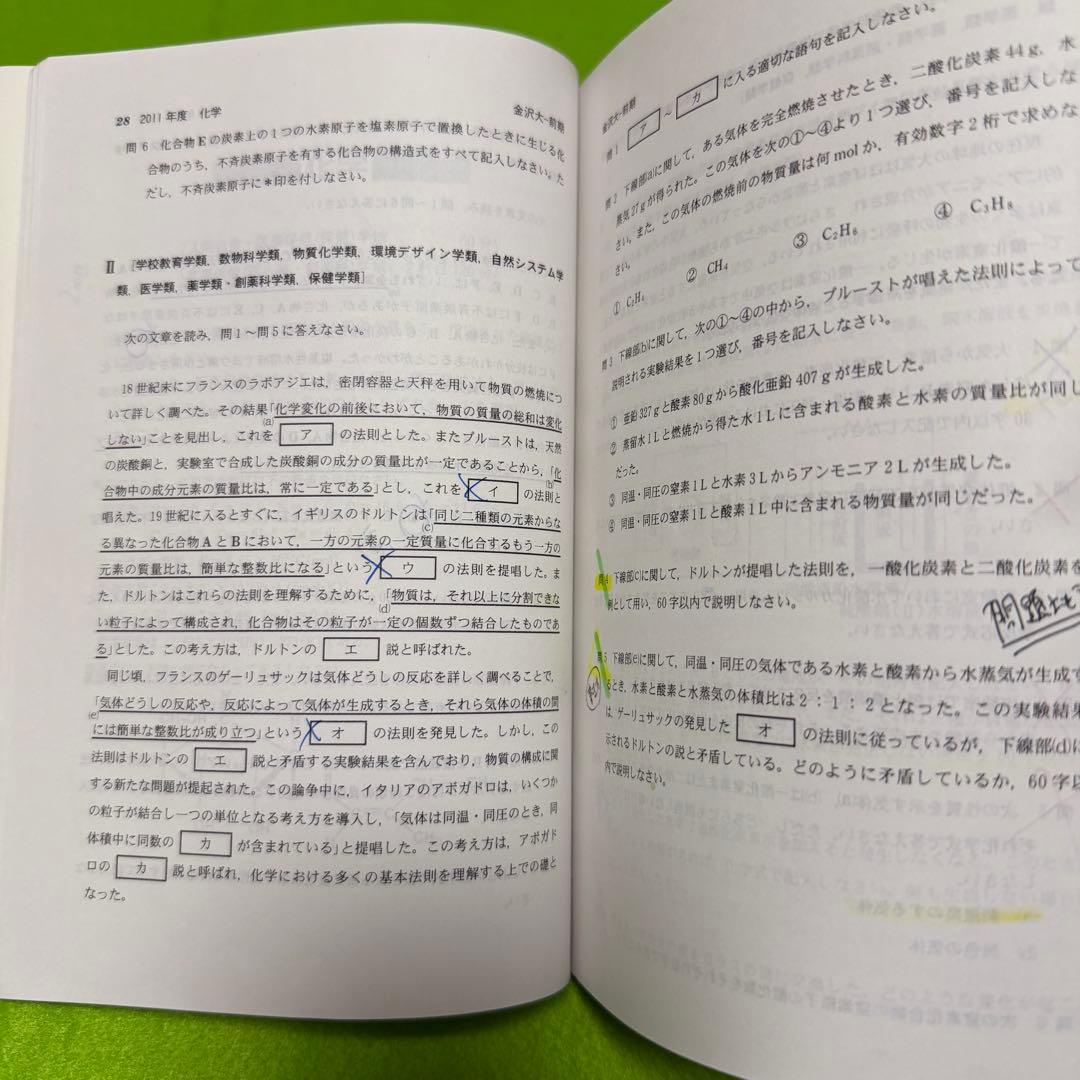 28 2011年度 化学
金沢大-前期
問6 化合物Eの炭素上の1つの水素原子を塩素原子で置換したときに生じる化
合物のうち，不斉炭素原子を有する化合物の構造式をすべて記入しなさい。た
だし，不斉炭素原子に＊印を付しなさい。
Ⅱ 〔学校教育学類，数物科学類，物質化学類，環境デザイン学類，自然システム学
類，医学類，薬学類・創薬科学類，保健学類〕
次の文章を読み，問1～問5に答えなさい。
18世紀末にフランスのラボアジエは，密閉容器と天秤を用いて物質の燃焼につ
いて詳しく調べた。その結果「化学変化の前後において，物質の質量の総和は変化
(a)
しない」ことを見出し，これを ア の法則とした。またプルーストは，天然
の炭酸銅と，実験室で合成した炭酸銅の成分の質量比が一定であることから，「化
(b)
合物中の成分元素の質量比は，常に一定である」とし，これを イ の法則と
唱えた。19世紀に入るとすぐに，イギリスのドルトンは「同じ二種類の元素からな
(c)
る異なった化合物AとBにおいて，一方の元素の一定質量に化合するもう一方の
元素の質量比は，簡単な整数比になる」という ウ の法則を提唱した。ま
た，ドルトンはこれらの法則を理解するために，「物質は，それ以上に分割できな
(d)
い粒子によって構成され，化合物はその粒子が一定の個数ずつ結合したものであ
る」とした。この考え方は，ドルトンの エ 説と呼ばれた。
同じ頃，フランスのゲーリュサックは気体どうしの反応を詳しく調べることで，
「気体どうしの反応や，反応によって気体が生成するとき，それら気体の体積の間
(e)
には簡単な整数比が成り立つ」という オ の法則を発見した。しかし，この
法則はドルトンの エ 説と矛盾する実験結果を含んでおり，物質の構成に関
する新たな問題が提起された。この論争中に，イタリアのアボガドロは，いくつか
の粒子が結合し一つの単位となる考え方を導入し，「気体は同温・同圧のとき，同
体積中に同数の カ が含まれている」と提唱した。この考え方は，アボガド
ロの カ 説と呼ばれ，化学における多くの基本法則を理解する上での礎と
なった。
金沢大-前期
問1 ア ～ カ に入る適切な語句を記入しなさい。
問2 下線部(a)に関して，ある気体を完全燃焼させたとき，二酸化炭素44g，水
蒸気27gが得られた。この気体を次の①～④より1つ選び，番号を記入しな
さい。また，この気体の燃焼前の物質量は何molか，有効数字2桁で求めな
さい。
① C₂H₄ ② CH₄ ③ C₂H₆ ④ C₃H₈
問3 下線部(b)に関して，次の①～④の中から，プルーストが唱えた法則によって
説明される実験結果を1つ選び，番号を記入しなさい。
① 亜鉛327gと酸素80gから酸化亜鉛407gが生成した。
② 蒸留水1Lと燃焼から得た水1Lに含まれる酸素と水素の質量比が同じ
だった。
③ 同温・同圧の窒素1Lと水素3Lからアンモニア2Lが生成した。
④ 同温・同圧の窒素1Lと酸素1L中に含まれる物質量が同じだった。
問4 下線部(c)に関して，ドルトンが提唱した法則を，一酸化炭素と二酸化炭素を
例として用い，60字以内で説明しなさい。
問5 下線部(e)に関して，同温・同圧の気体である水素と酸素から水蒸気が生成す
るとき，水素と酸素と水蒸気の体積比は2：1：2となった。この実験結果
は，ゲーリュサックの発見した オ の法則に従っているが，下線部(d)に
示されるドルトンの説と矛盾している。どのように矛盾しているか，60字以
内で説明しなさい。